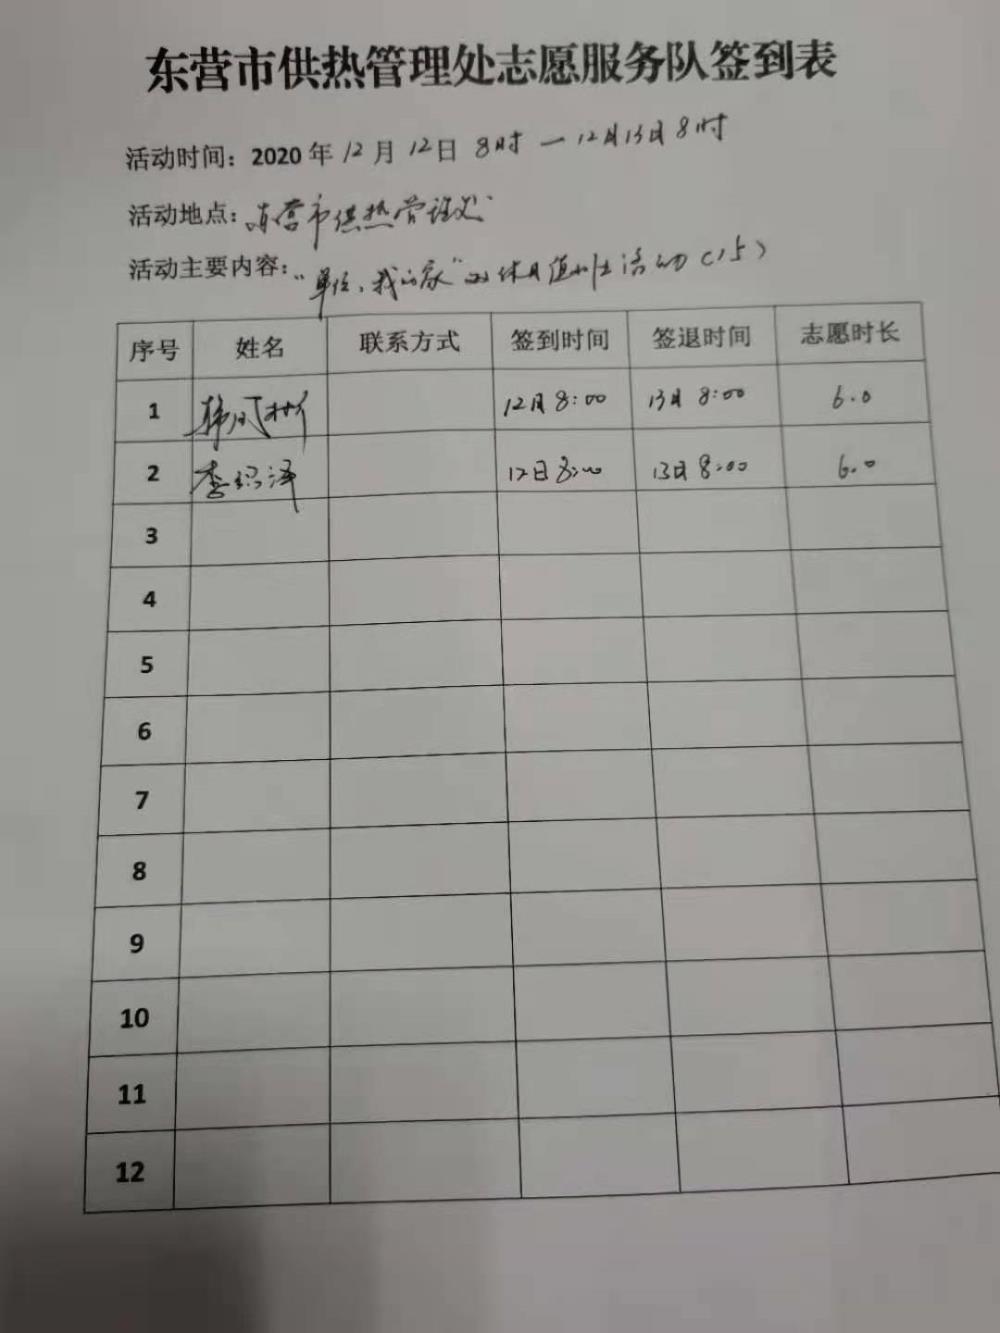 东营市供热管理处志愿服务队签到表
活动时间：2020 年 12 月 12 日 8时 — 12月13日8时
活动地点：东营市供热管理处
活动主要内容："单位、我的家" 休 值 活动（15）
序号 姓名 联系方式 签到时间 签退时间 志愿时长
1 韩凤 12日 8:00 13日 8:00 6.0
2 李 泽 12日 8:00 13日 8:00 6.0
3
4
5
6
7
8
9
10
11
12